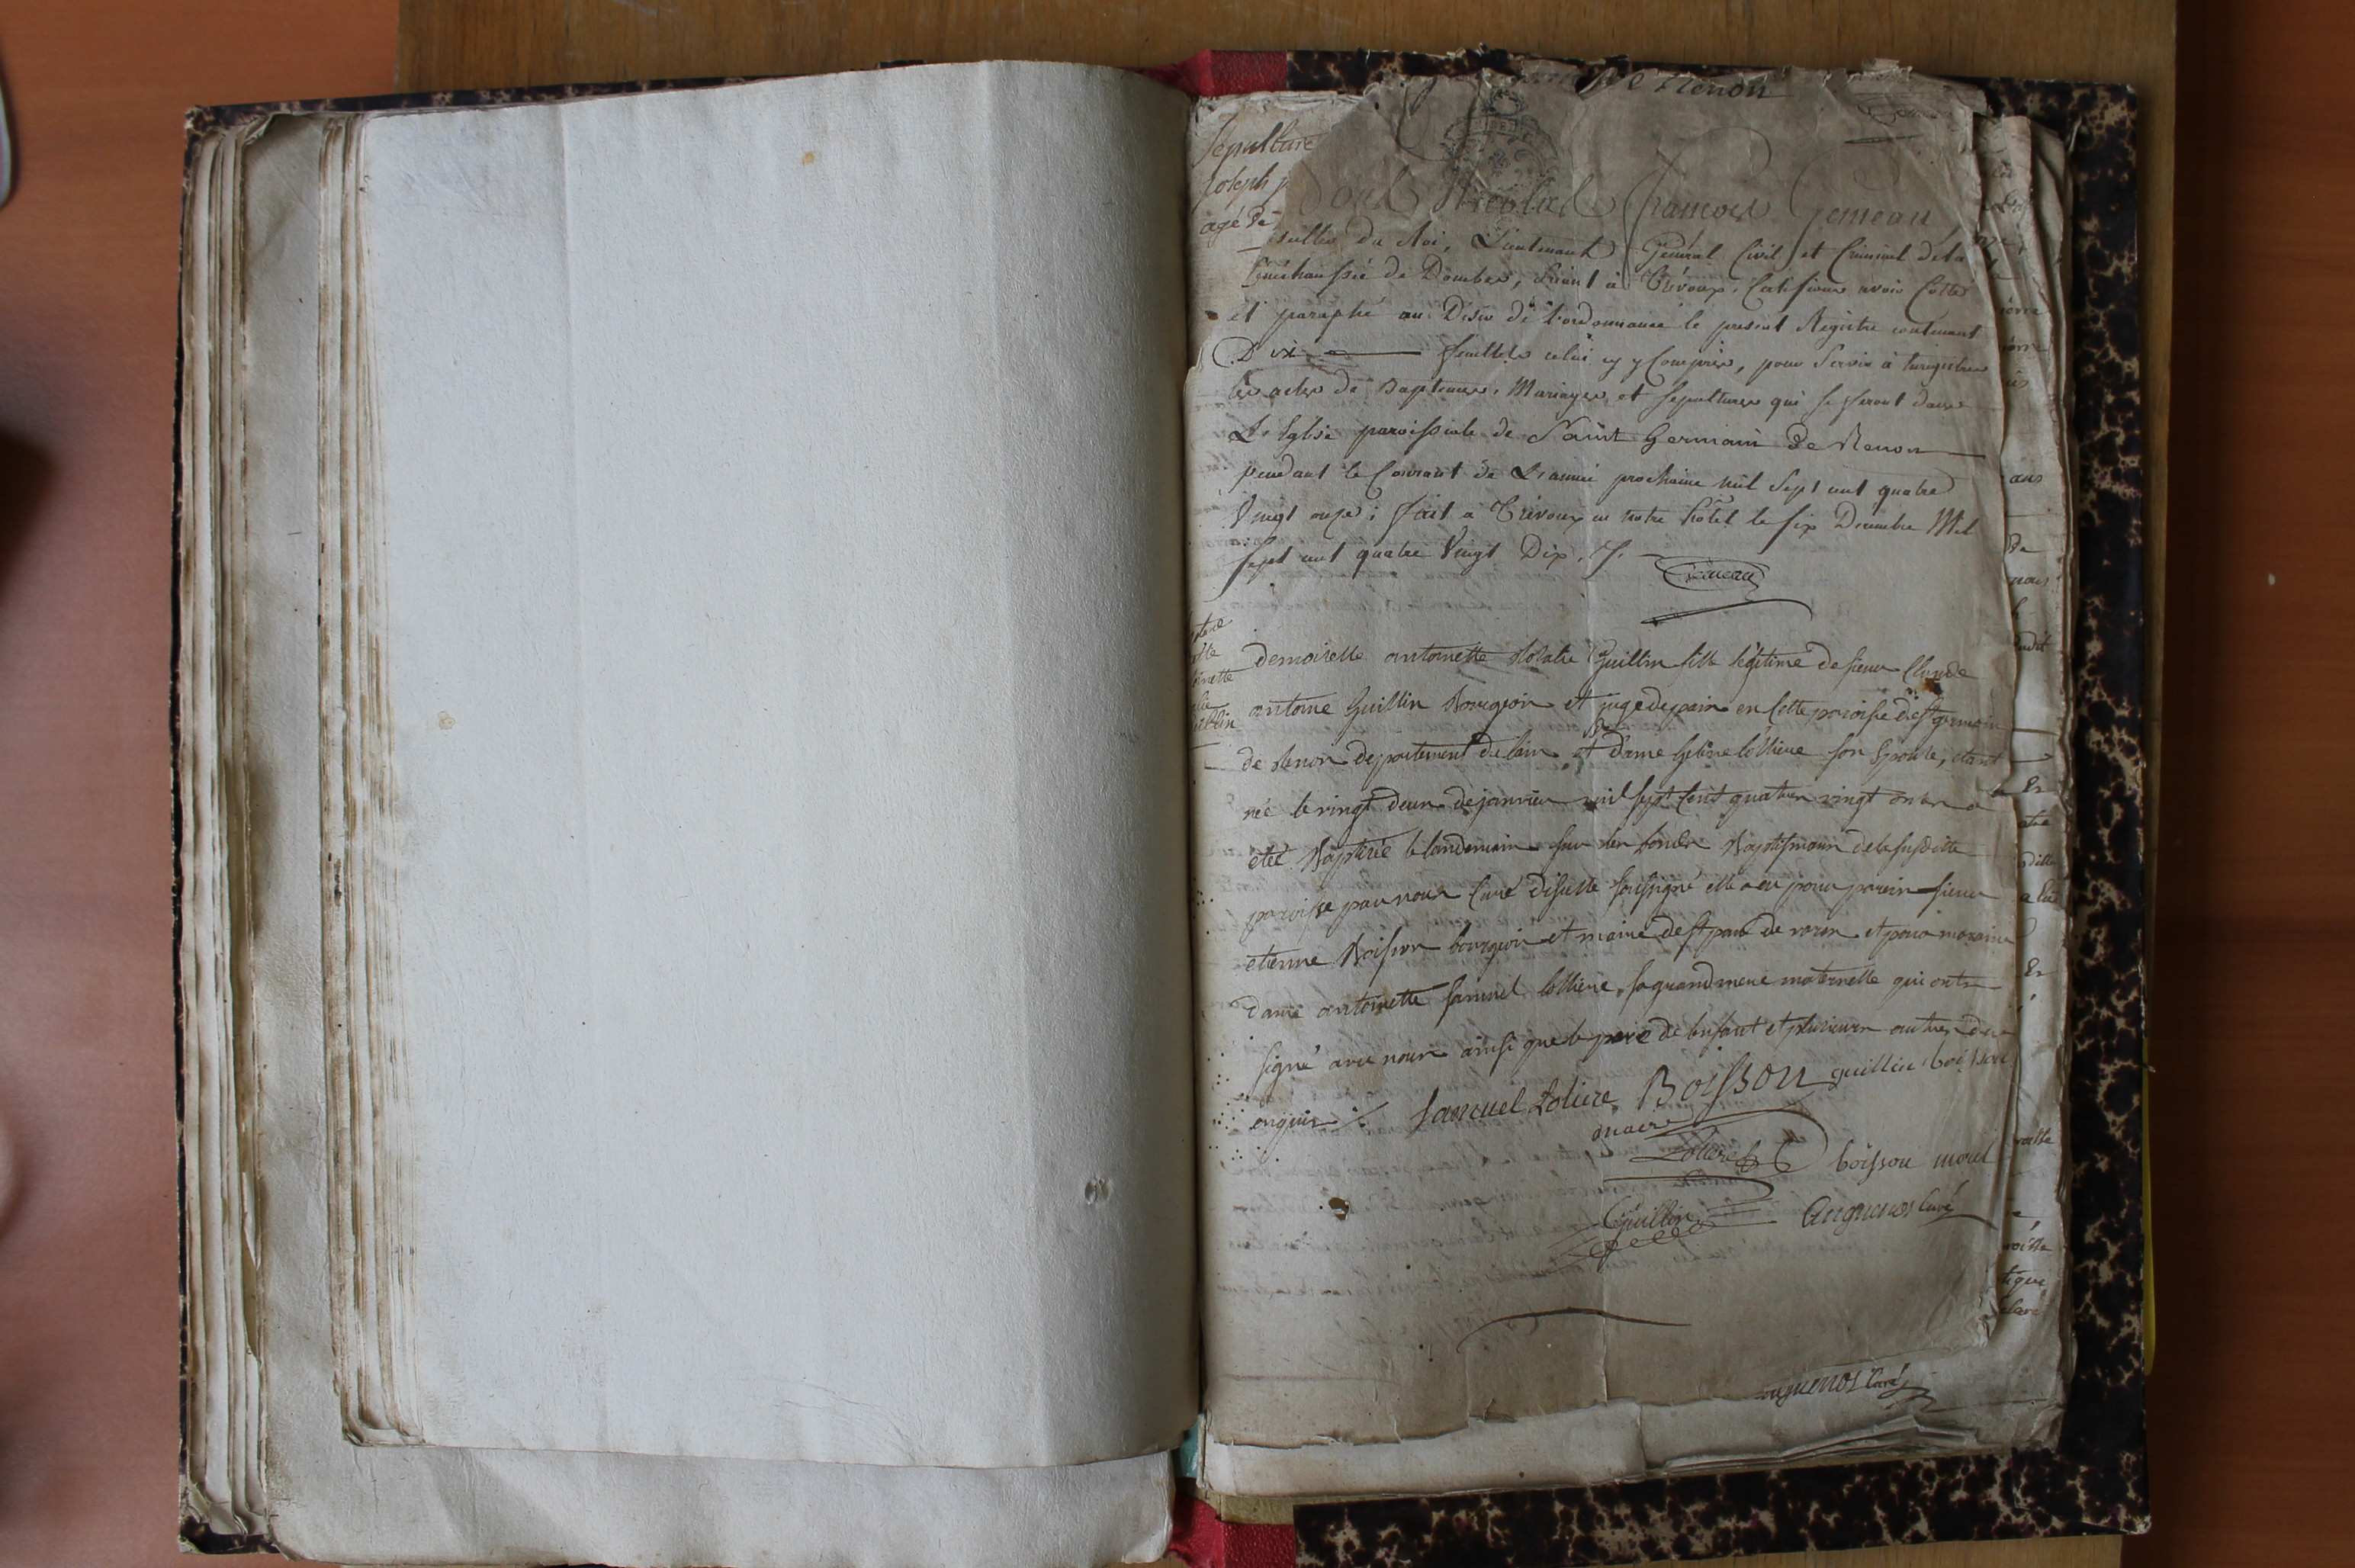 de Renon
Sepulture
joseph
agé de
Nous Nicolas François Gemeau
Conseiller du Roi, Lieutenant Général Civil et Criminel de la
Sénéchaussée de Dombes, séant à Trévoux, Certifions avoir Cotté
et paraphé au Désir de l'ordonnance le present Registre contenant
Dix feuillets celui cy y Compris, pour Servir à Enregistrer
les actes de Baptemes, Mariages, et Sepultures qui se feront dans
L'Eglise paroissiale de Saint Germain de Renon
pendant le Courant de L'année prochaine mil Sept cent quatre
Vingt onze; fait à Trévoux en notre hôtel le six Decembre Mil
Sept cent quatre Vingt Dix.
Gemeau
demoiselle antoinette Guillin fille légitime de sieur Claude
antoine Guillin Bourgeois et juge de paix en cette paroisse de st germain
de Renon departement de lain, et dame helene lolliere son Epouse, étant
née le vingt deux de janvier mil sept cent quatre vingt onze a
etée Baptisée le landemain sur les fonds Baptismaux de la susditte
paroisse par nous Curé dicelle soussigné elle a eu pour parein sieur
etienne Boisson bourgeois et maire de st paul de varax et pour maraine
dame antoinette samuel lolliere, sa grand mere maternelle qui ont
signé avec nous ainsi que le pere de l'enfant et plusieurs autres de ce
enquis ∴ Samuel Loliere Boisson guillin boisson
maire
Loliere boisson morel
Guillin Augueros Curé
Curé